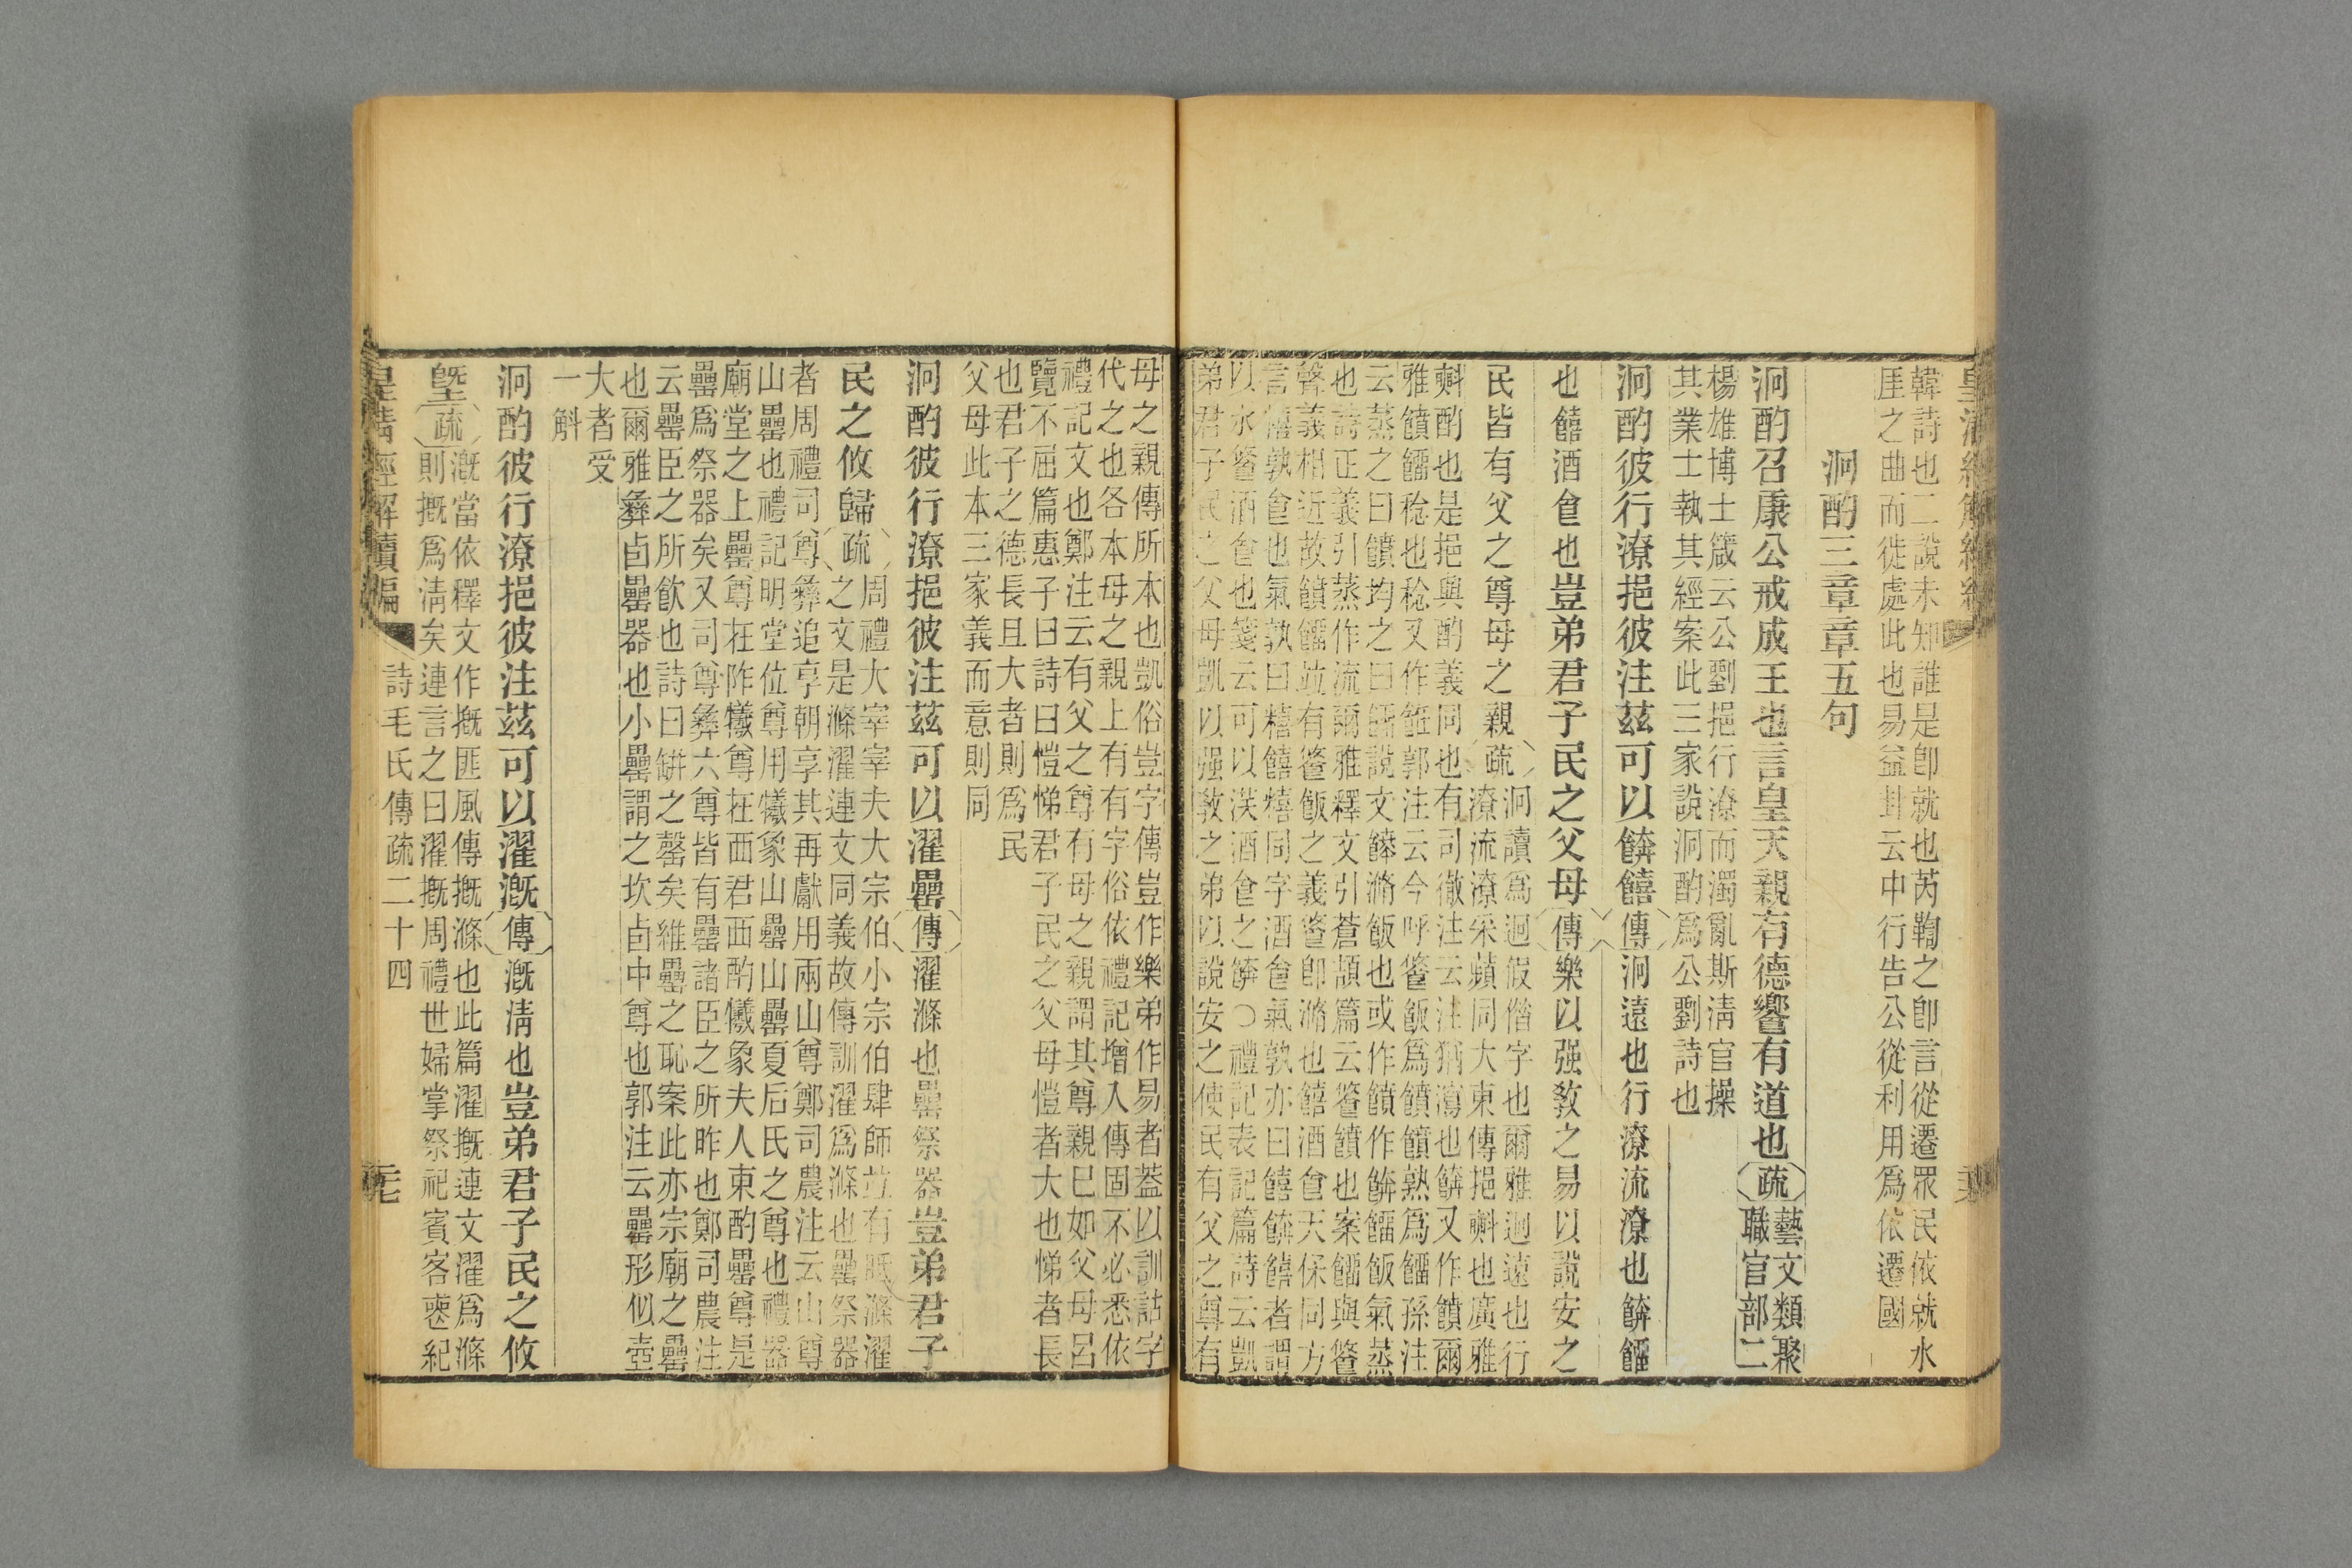 韓詩也二說未知誰是卽就也芮鞫之卽言從遷眾民依就水
厓之曲而徙處此也易益卦云中行告公從利用爲依遷國
泂酌三章章五句
泂酌召康公戒成王也言皇天親有德饗有道也疏藝文類聚
職官部二
楊雄博士箴云公劉挹行潦而濁亂斯淸官操
其業士執其經案此三家說泂酌爲公劉詩也
泂酌彼行潦挹彼注茲可以餴饎傳泂遠也行潦流潦也餴餾
也饎酒食也豈弟君子民之父母傳樂以强敎之易以說安之
民皆有父之尊母之親疏泂讀爲迥假偕字也爾雅迥遠也行
潦流潦采蘋同大東傳挹㪺也廣雅
㪺酌也是挹與酌義同也有司徹注云注猶瀉也餴又作饙爾
雅饙餾稔也稔又作餁郭注云今呼䬸飯爲饙饙熟爲餾孫注
云蒸之曰饙均之曰餾說文餴滫飯也或作饙作餴餾飯氣蒸
也詩正義引蒸作流爾雅釋文引蒼頡篇云䬸饙也案餾與䬸
聲義相近故饙餾竝有䬸飯之義䬸卽滫也饎酒食天保同方
言饎孰食也氣孰曰糦饎糦同字酒食氣孰亦曰饎餴饎者謂
以水䬸酒食也箋云可以沃酒食之餴○禮記表記篇詩云凱
弟君子民之父母凱以强敎之弟以說安之使民有父之尊有
母之親傳所本也凱俗豈字傳豈作樂弟作易者葢以訓詁字
代之也各本母之親上有有字俗依禮記增入傳固不必悉依
禮記文也鄭注云有父之尊有母之親謂其尊親已如父母呂
覽不屈篇惠子曰詩曰愷悌君子民之父母愷者大也悌者長
也君子之德長且大者則爲民
父母此本三家義而意則同
泂酌彼行潦挹彼注茲可以濯罍傳濯滌也罍祭器豈弟君子
民之攸歸疏周禮大宰宰夫大宗伯小宗伯肆師竝有眂滌濯
之文是滌濯連文同義故傳訓濯爲滌也罍祭器
者周禮司尊彝追享朝享其再獻用兩山尊鄭司農注云山尊
山罍也禮記明堂位尊用犧象山罍山罍夏后氏之尊也禮器
廟堂之上罍尊在阼犧尊在西君西酌犧象夫人東酌罍尊是
罍爲祭器矣又司尊彝六尊皆有罍諸臣之所昨也鄭司農注
云罍臣之所飮也詩曰缾之罄矣維罍之恥案此亦宗廟之罍
也爾雅彝卣罍器也小罍謂之坎卣中尊也郭注云罍形似壺
大者受
一斛
泂酌彼行潦挹彼注茲可以濯漑傳漑淸也豈弟君子民之攸
塈疏漑當依釋文作摡匪風傳摡滌也此篇濯摡連文濯爲滌
則摡爲淸矣連言之曰濯摡周禮世婦掌祭祀賓客喪紀
皇淸經解續編 詩毛氏傳疏二十四